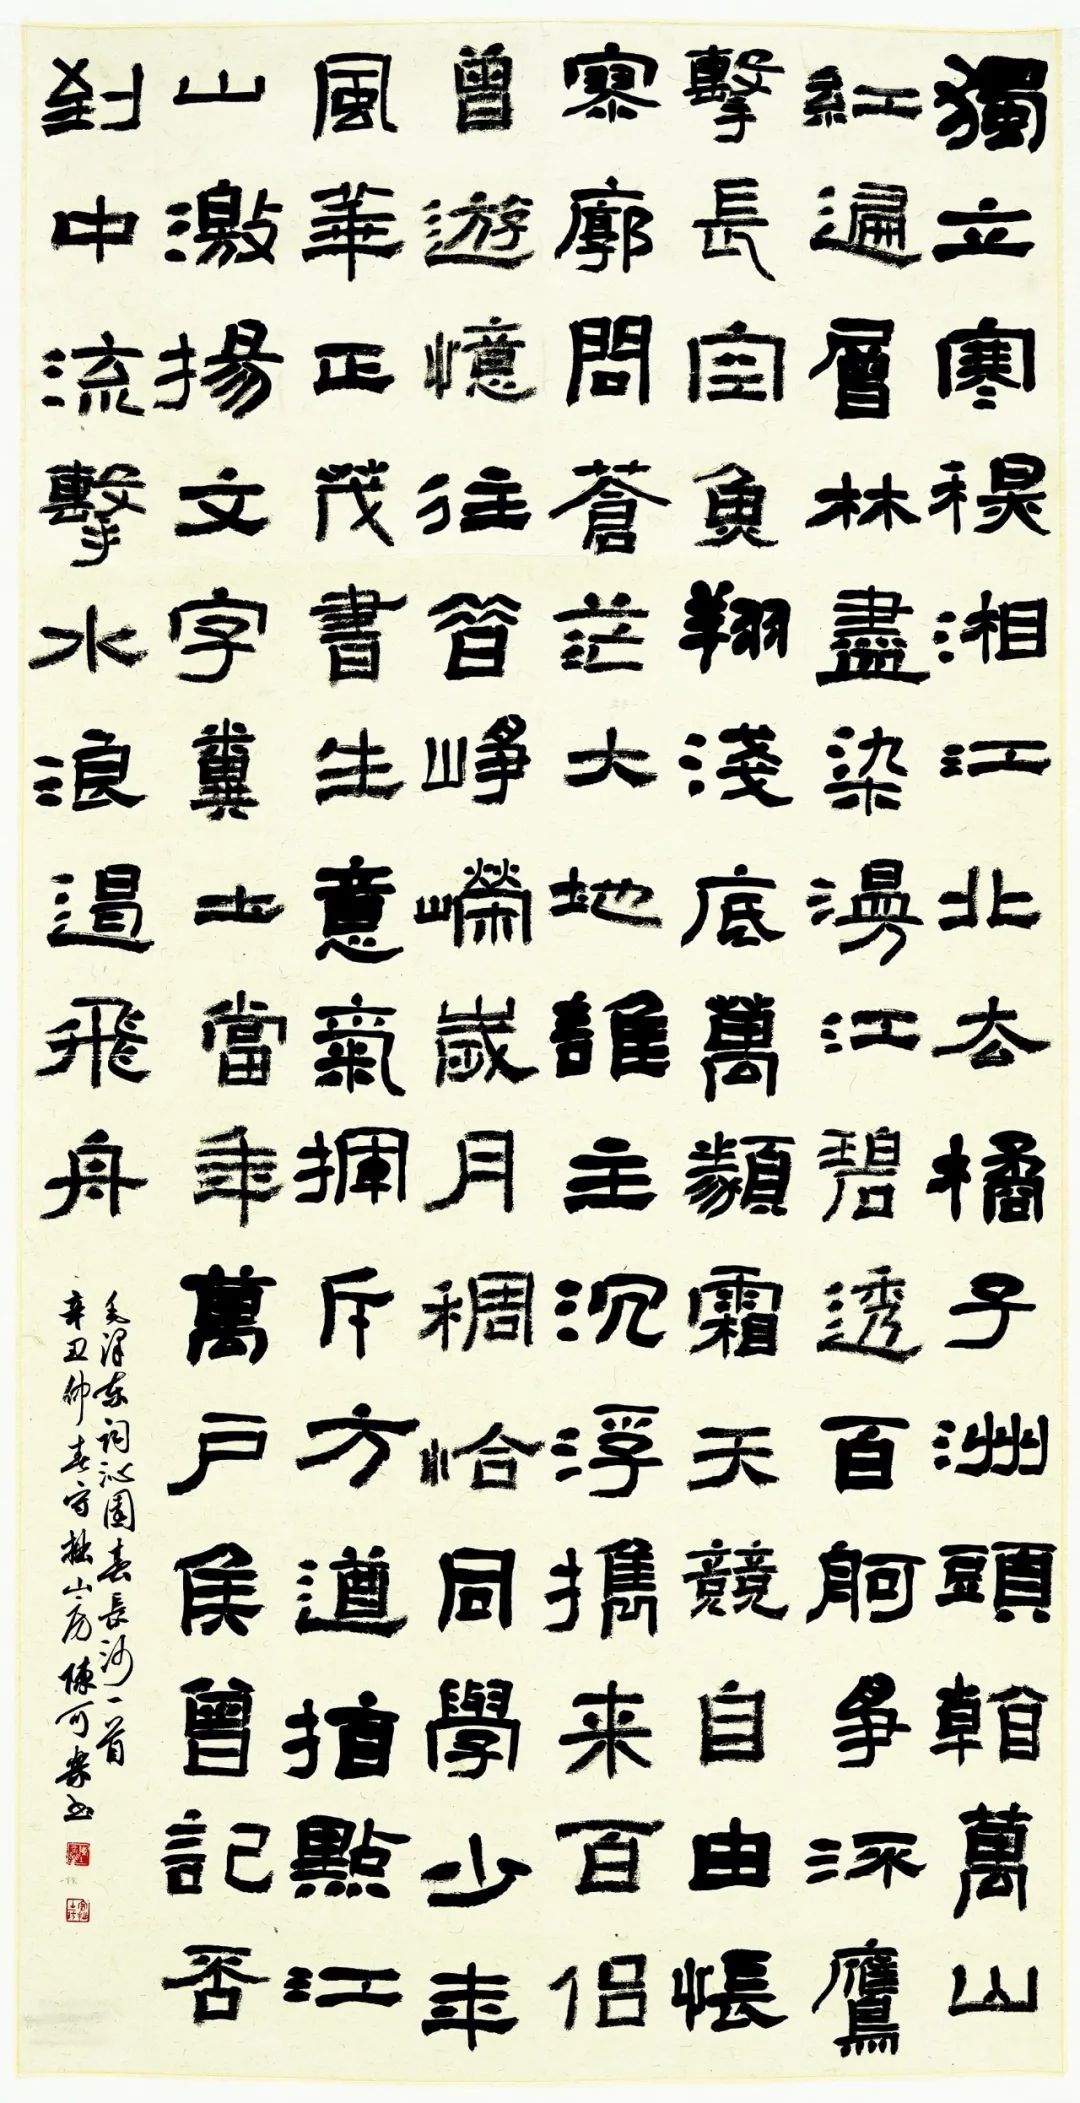 獨立寒秋湘江北去橘子洲頭看萬山
紅遍層林盡染漫江碧透百舸爭流鷹
擊長空魚翔淺底萬類霜天競自由悵
寥廓問蒼茫大地誰主沉浮攜来百侣
曾遊憶往昔崢嶸歲月稠恰同學少年
風華正茂書生意氣揮斥方遒指點江
山激揚文字糞土當年萬户侯曾記否
到中流擊水浪遏飛舟
毛泽东词沁園春長沙一首
辛丑仲春守拙山房陳可书